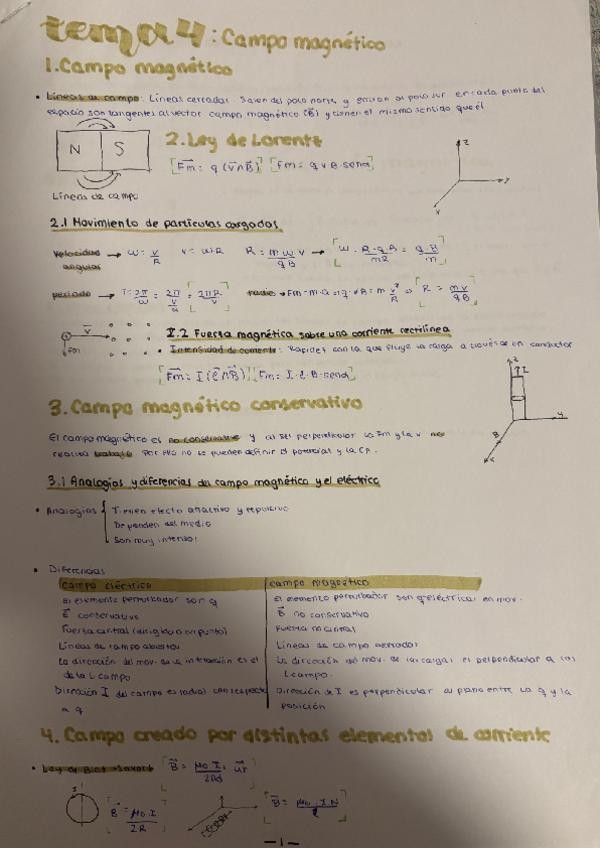 tema 4: Campo magnético
1. Campo magnético
• Líneas de campo: Líneas cerradas. Salen del polo norte y entran al polo sur en cada punto del
espacio son tangentes al vector campo magnético (B⃗) y tienen el mismo sentido que él
N S
Líneas de campo
2. Ley de Lorentz
[F⃗m = q (v⃗ ∧ B⃗)] [Fm = q v B · senα]
z
y
x
2.1 Movimiento de partículas cargadas
Velocidad angular → ω = v/R v = ω·R R = m ω v / q B → [ω = R·q·B / m R = q·B / m]
periodo → T = 2π/ω = 2π/(v/R) = [2πR/v] radio → Fm = m·a => q·v·B = m v²/R => [R = mv/qB]
v⃗
Fm
I.2 Fuerza magnética sobre una corriente rectilínea
• Intensidad de corriente: Rapidez con la que fluye la carga a través de un conductor
[F⃗m = I (ℓ⃗ ∧ B⃗)] [Fm = I·ℓ·B·senα]
z
I
y
B
x
3. Campo magnético conservativo
El campo magnético es no conservativo y al ser perpendicular la Fm y la v no
realiza trabajo. Por ello no se pueden definir el potencial y la Ep.
3.1 Analogías y diferencias del campo magnético y el eléctrico
• Analogías { Tienen efecto atractivo y repulsivo
Dependen del medio
Son muy intensos
• Diferencias
Campo eléctrico
Campo magnético
El elemento perturbador son q
El elemento perturbador son q eléctricas en mov.
E⃗ conservativo
B⃗ no conservativo
Fuerza central (dirigida a un punto)
Fuerza no central
Líneas de campo abiertas
Líneas de campo cerradas
La dirección del mov. de la interacción es el
de la L campo
La dirección del mov. de las cargas es perpendicular a las
L campo.
Dirección I del campo es radial con respecto
a q
Dirección de I es perpendicular al plano entre la q y la
posición
4. Campo creado por distintas elementos de corriente
• Ley de Biot-Savart [B⃗ = μ₀ I / 2πd · u⃗r]
I
[B⃗ = μ₀·I / 2R]
[B⃗ = μ₀·I·N / ℓ]
-1-